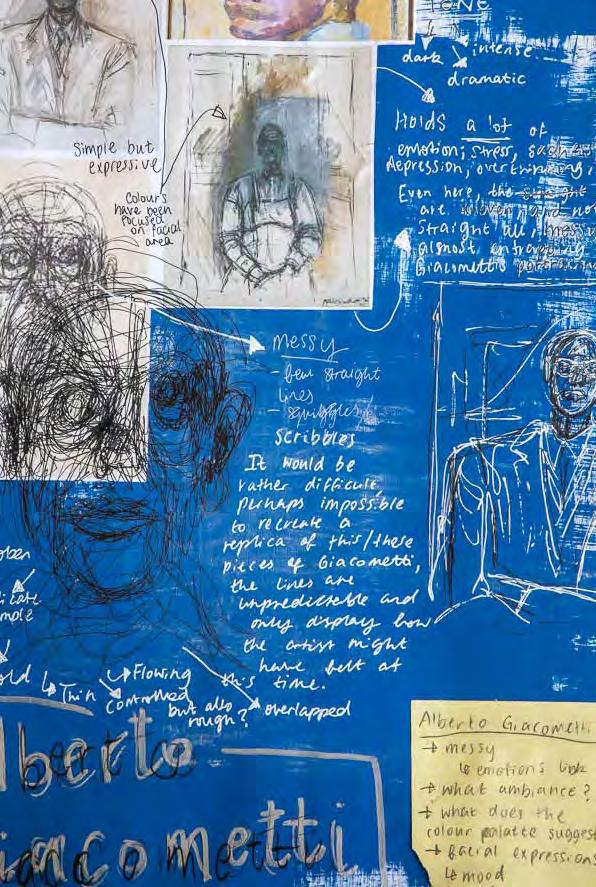 TONE
dark intense
dramatic
Holds a lot of
emotion; stress,
depression, overthinking,
Even here, the straight
are
straight all, messy
almost entrapping
Giacometti's
Simple but
expressive
Colours
have been
focused
on facial
area
messy
- few straight
lines
- squiggles/
scribbles
It would be
rather difficult,
perhaps impossible
to recreate a
replica of this/these
pieces of Giacometti,
the lines are
unpredictable and
only display how
the artist might
have felt at
this time.
Flowing
Thin controlled
but also overlapped
rough?
lberto
iacometti
Alberto Giacometti
→ messy
↳ emotions link
→ what ambiance?
→ what does the
colour palatte suggest
→ facial expressions
↳ mood